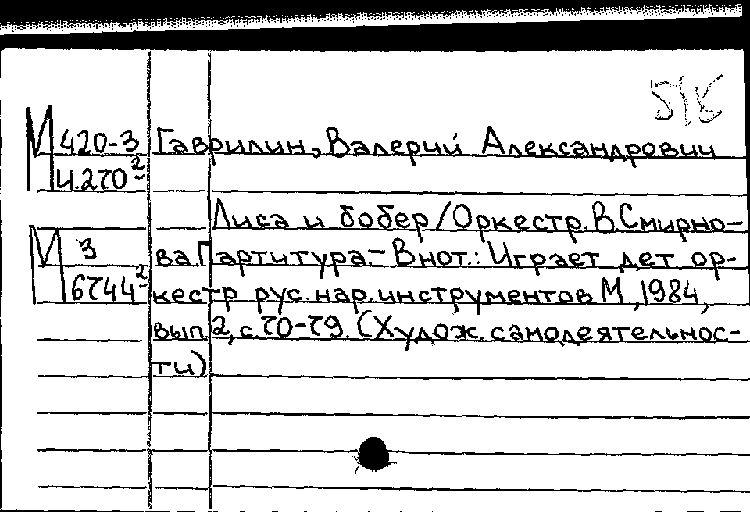 5/5
М 420-3 Гаврилин, Валерий Александрович
И.270²
Лиса и бобер/Оркестр. В.Смирно-
М 3 ва.Партитура.-В нот.: Играет дет ор-
6744² кестр рус. нар. инструментов М, 1984,
вып.2, с.70-79. (Худож. самодеятельнос-
ти)